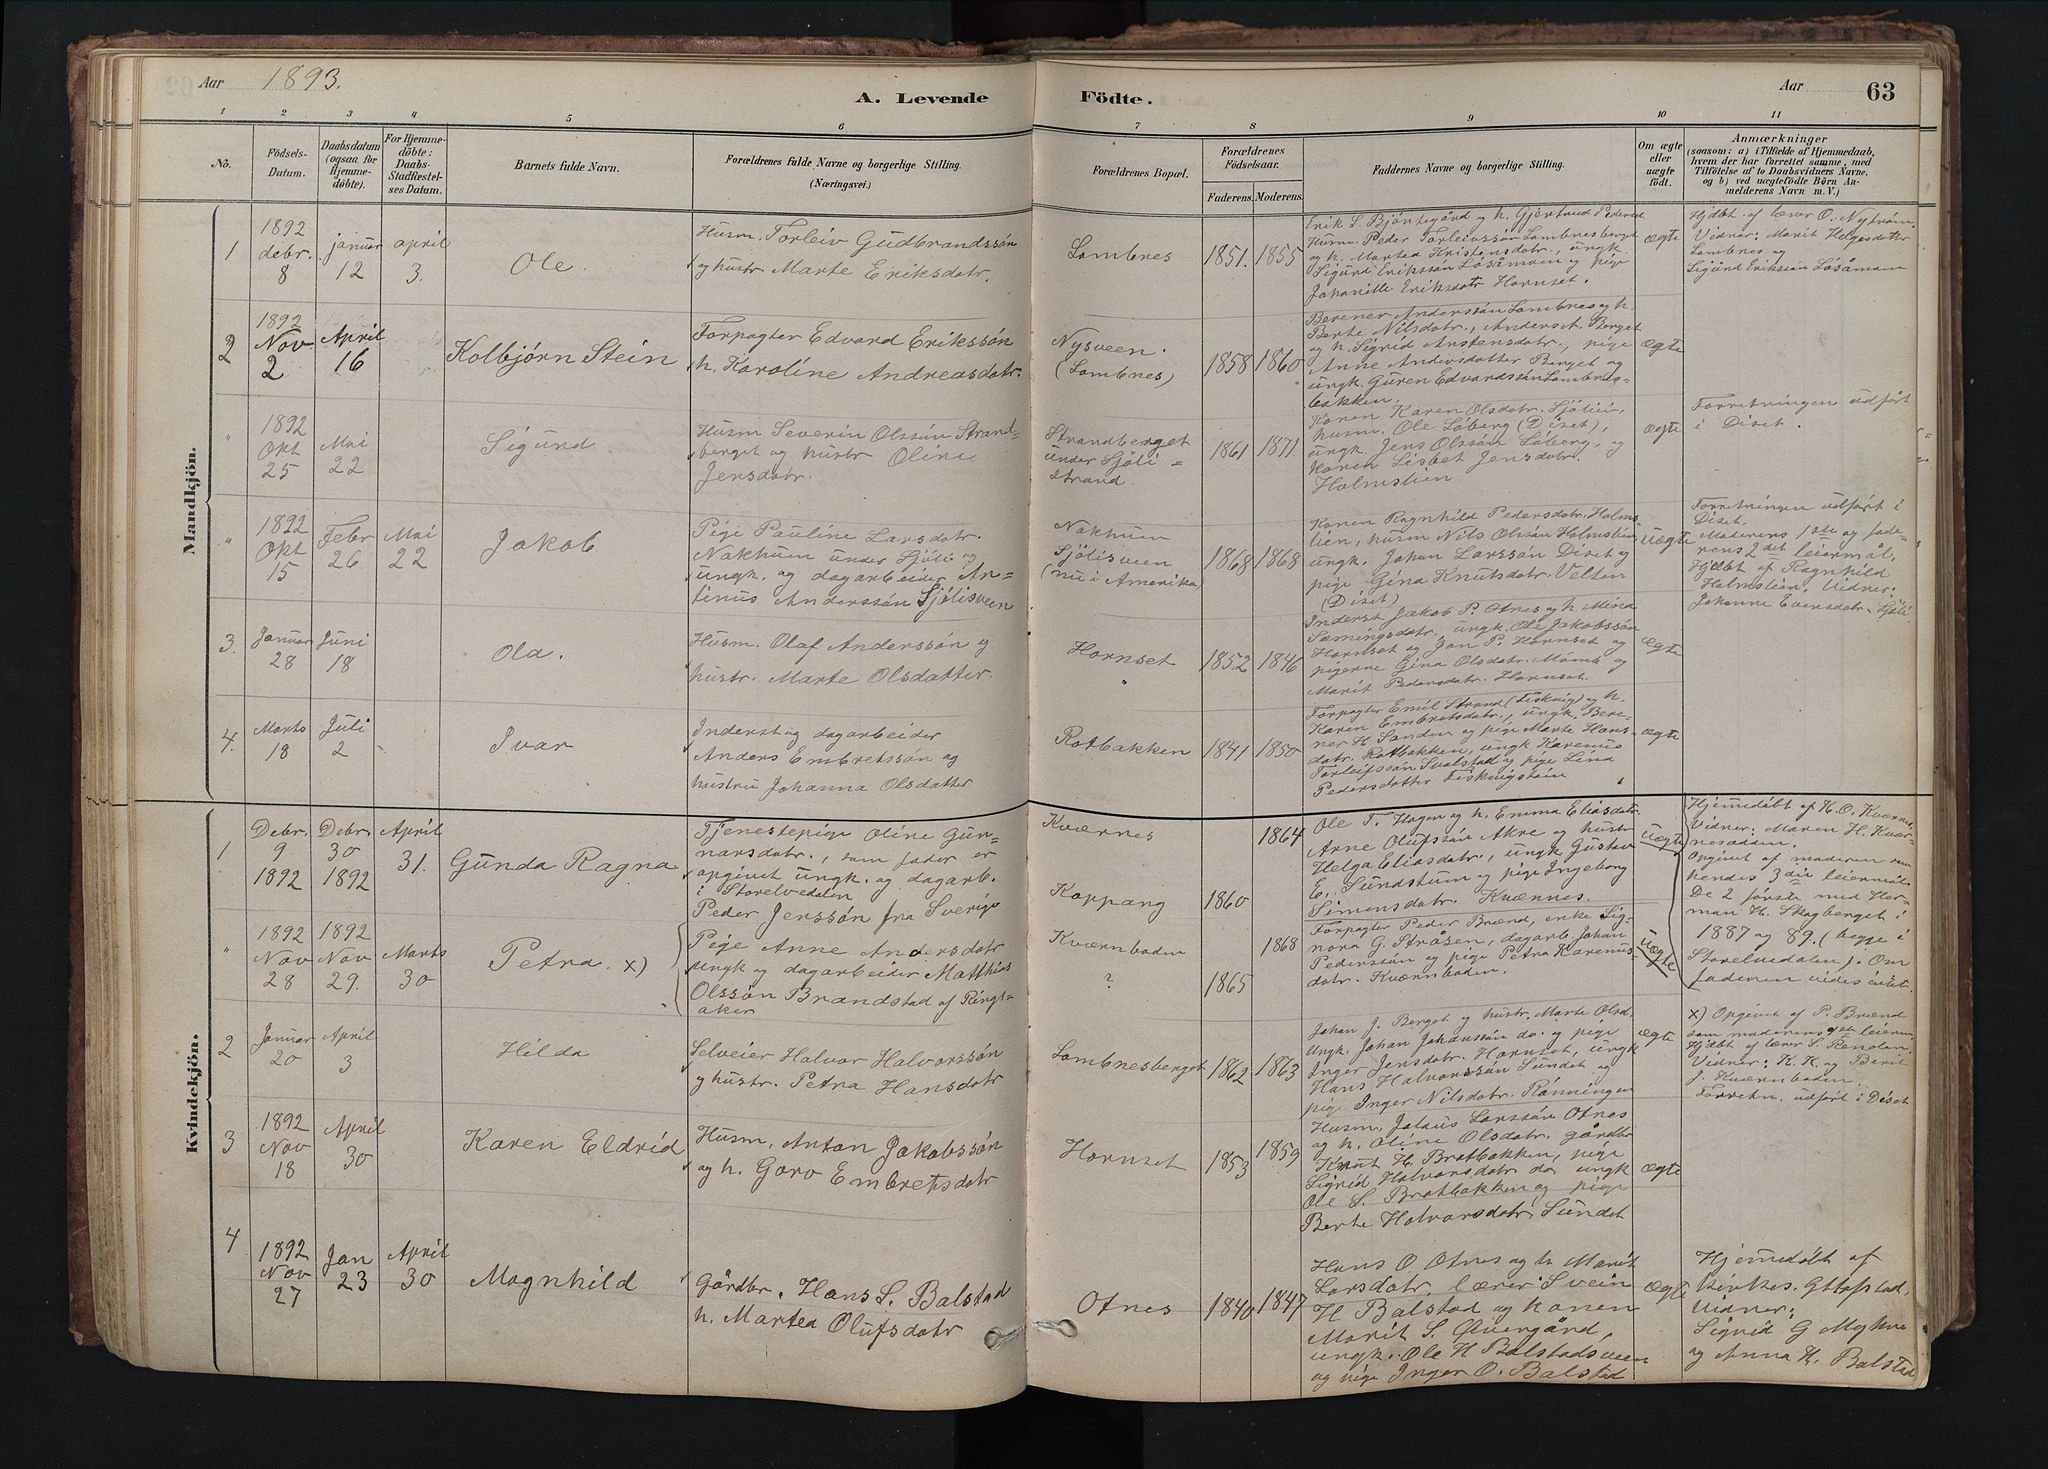 Aar 1893.
A. Levende Födte.
Aar
63
1 2 3 4 5 6 7 8 9 10 11
No.
Födsels-Datum.
Daabsdatum (ogsaa for Hjemmedöbte).
For Hjemmedöbte: Daabs-Stadfæstelses Datum.
Barnets fulde Navn.
Forældrenes fulde Navne og borgerlige Stilling. (Næringsvei.)
Forældrenes Bopæl.
Forældrenes Födselsaar.
Faderens. Moderens.
Faddernes Navne og borgerlige Stilling.
Om ægte eller uægte födt.
Anmærkninger
(saasom: a) i Tilfælde af Hjemmedaab,
hvem der har forrettet samme, med
Tilföielse af to Daabsvidners Navne,
og b) ved uægtefödte Börn Anmelderens Navn m. V.)
Mandkjön.
1
1892 debr. 8
januar 12
april 3.
Ole.
Husm. Torleiv Gudbrandssön
og hustr. Marte Eriksdatr.
Lombnes
1851. 1855
Erik S. Bjöntegård og h. Gjertrud Pedersd
Husm. Peder Torleivssön Lombnesberget
og h. Martea Kristensdatr. ungk
Sigurd Erikssön Lösåmoen og pige
Johanitte Eriksdatr Hornset.
ægte
Hjdbt. af lærer O. Nyström.
Vidner: Marit Helgesdatter
Lombnes og
Sigurd Erikssön Lösåmoen
2
1892 Nov 2
April 16
Kolbjørn Stein
Forpagter Edvard Erikssön
h. Karoline Andreasdatr.
Nysveen.
(Lombnes)
1858 1860
Berener Anderssön Lombnes og h.
Berte Nilsdatr., Anders Berget
og h. Sigrid Anstensdatr., pige
Anne Andersdatter Berget og
ungk. Guren Edvardssön Lombnes-
bakken.
ægte
"
1892 Okt 25
Mai 22
Sigurd
Husm Severin Olssön Strand-
berget og hustr Oline
Jensdatr.
Strandberget
under Sjöli-
strand.
1861 1871
Konen Karen Olsdatr. Sjölii,
husm. Ole Löberg (Diset),
ungk. Jens Olssön Löberg, og
Karen Lisbet Jensdatr.
Holmstien
ægte
Forretningen udfört
i Diset.
"
1892 Okt 15
Febr 26
Mai 22
Jakob
Pige Pauline Larsdatr.
Nakhuen under Sjöli og
ungk. og dagarbeider An-
tinus Anderssön Sjölisveen
Nakhuen
Sjölisveen
(nu i Amerika)
1868 1868
Konen Ragnhild Pedersdatr. Holms-
lien, husm Nils Olssön Holmstien
ungk. Johan Larssön Diset og
pige Gina Knutsdatr. Velten
(Diset)
uægte
Forretningen udfört i
Diset.
Moderens 1ste og fade-
rens 2det leiermål,
Hjdbt af Ragnhild
Holmstien. Vidner:
Johanne Eversdatr. Sjöli
3.
Januar 28
Juni 18
Ola.
Husm. Olaf Anderssön og
hustr. Marte Olsdatter.
Hornset
1852 1846
Inderst Jakob P. Otnes og h. Mina
Sæmingsdatr. ungk. Ole Jakobssön
Hornset og Jon P. Hornset og
pigerne Gina Olsdatr. Momb og
Marit Pedersdatr. Hornset.
ægte
4.
Marts 18
Juli 2
Ivar
Inderst og dagarbeider
Anders Embretssön og
hustru Johanna Olsdatter
Rotbakken
1841 1850
Forpagter Emil Strand (Fiskvig) og h.
Karen Embretsdatr., ungk. Bere-
ner H Sanden og pige Marte Hans-
datr. Rotbakken, ungk Karenus
Torleifssön Svalstad og pige Lina
Pedersdatter Fiskvigstein
ægte
Kvindekjön.
1
Debr. 9 1892
Debr. 30 1892
April 31.
Gunda Ragna
Tjenestepige Oline Gun-
narsdatr., som fader er
opgivet ungk. og dagarb.
i Storelvedalen
Peder Jenssön fra Sverige
Kværnes
Koppang
1860 1864
Ole T. Hagen og h. Emma Eliasdatr.
Arne Olufssön Akre og hustr
Helga Eliasdatr., ungk Gustav
E. Sundstum og pige Ingeborg
Simensdatr. Kværnes.
uægte
Hjemedöbt af H. O. Kværnes.
Vidner: Maren H. Kvær-
nesodden.
Opgivet af moderen som
hendes 3die leiermål.
De 2 første med Her-
man H. Skogberget i
1887 og 89. (begge i
Storelvedalen). Om
faderen vides intet.
"
1892 Nov 28
1892 Nov 29.
Marts 30
Petra. x)
Pige Anne Andersdatr
ungk og dagarbeider Matthias
Olssön Brandstad af Rings-
aker
Kværnboden
?
1865 1868
Forpagter Peder Brænd, enke Sig-
nora G. Stråsen, dagarb. Johan
Pederssön og pige Petra Karenus-
datr. Kværnboden.
uægte
2
Januar 20
April 3
Hilda
Selveier Halvor Halvorssön
og hustr. Petra Hansdatr
Lombnesberget
1862 1863
Johan J. Berget og hustr. Marte Olsd.
Ungk. Johan Johanssön do. og pige
Inger Jensdatr. Hornset, ungk
Hans Halvorssön Sundet og
pige Inger Nilsdatr. Rönningen
ægte
x) Opgivet af P. Brænd
som moderens leierm.
Hjdbt af lærer S. Renden.
Vidner: K. K og Berit
J. Kværnboden.
Forretn. udfört i Diset
3
1892 Nov 18
April 30
Karen Eldrid
Husm, Anton Jakobssön
og h. Goro Embretsdatr
Hornset
1853 1859
Husm, Johans Larssön Otnes
og h. Oline Olsdatr. gårdbr
Knut H. Bratbakken, pige
Sigrid Halvorsdatr do ungk
Ole S. Bratbakken og pige
Berte Halvorsdatr, Sundet
ægte
4
1892 Nov 27
Jan 23
April 30
Magnhild
Gårdbr. Hans S. Balstad
h. Martea Olufsdatr
Otnes
1840 1847
Hans O. Otnes og h Marit
Larsdatr. lærer Svein
H Balstad og konen
Marit S. Øvergård,
ungk. Ole H Balstadsveen
og pige Inger O. Balstad
ægte
Hjemedöbt af
kirkes. G
Vidner:
Sigrid G Myhre
og Anna H. Balstad